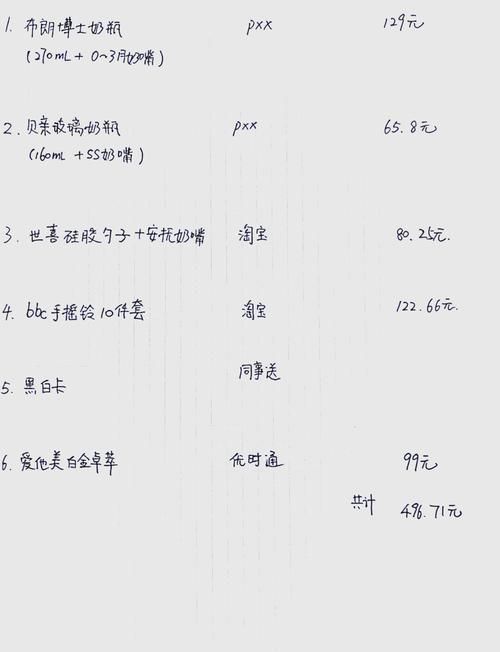 1. 布朗博士奶瓶 pxx 129元
(270mL + 0~3月奶嘴)
2. 贝亲玻璃奶瓶 pxx 65.8元
(160mL + SS奶嘴)
3. 世喜硅胶勺子+安抚奶嘴 淘宝 80.25元.
4. bbc手摇铃10件套 淘宝 122.66元.
5. 黑白卡 同事送
6. 爱他美白金卓萃 优时通 99元
共计 496.71元